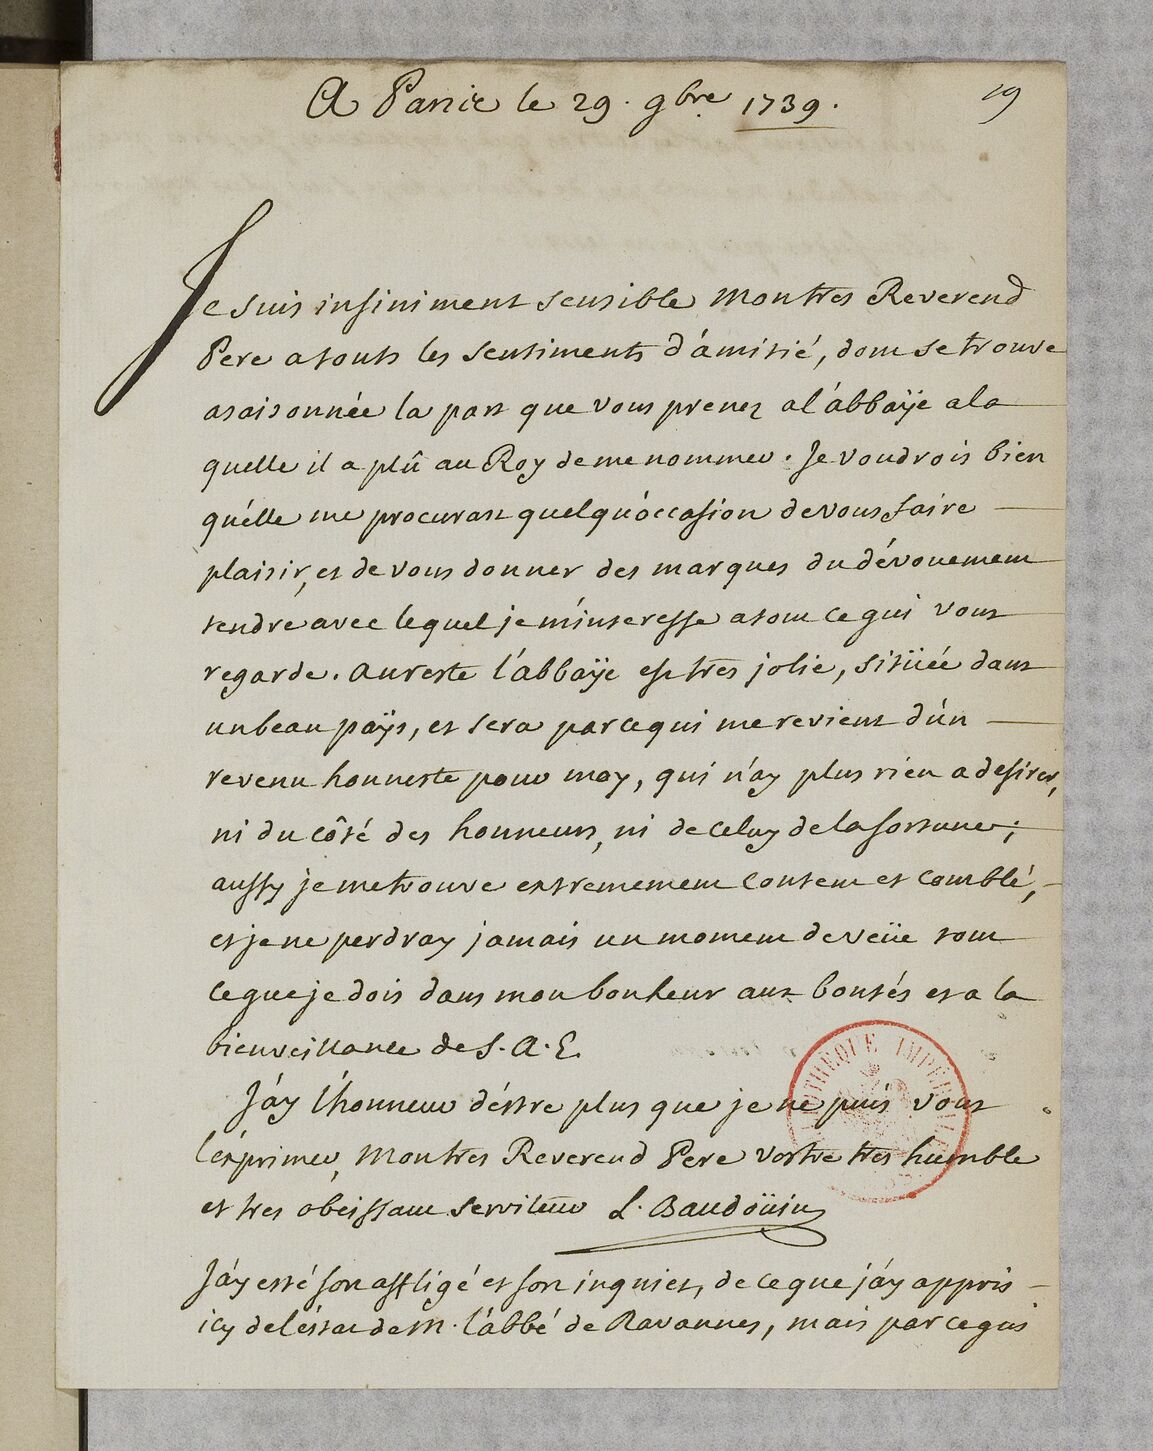 A Paris le 29. 9bre 1739.
19
Je suis infiniment sensible mon tres Reverend
Pere a touts les sentiments d'ámitié, dont se trouve
asaisonnée la part que vous prenez a l'ábbaÿe a la
quelle il a plû au Roy de me nommer. Je voudrois bien
qu'élle me procurast quelqu'óccasion de vous faire
plaisir, et de vous donner des marques du dévouement
tendre avec lequel je m'ínteresse a tout ce qui vous
regarde. au reste l'ábbaÿe est tres jolie, sitüée dans
un beau païs, et sera par ce qui me revient d'ún
revenu honneste pour moy, qui n'ay plus rien a desirer,
ni du côté des honneurs, ni de celuy de la fortune;
aussy je me trouve extremement content et comblé,
et je ne perdray jamais un moment de veüe tout
ce que je dois dans mon bonheur aux bontés et a la
bienveillance de S. A. E.
J'áy l'honneur d'éstre plus que je ne puis vous
l'éxprimer, mon tres Reverend Pere vostre tres humble
et tres obeissant serviteur L. Baudoüin
J'áy esté fort affligé et fort inquiet, de ce que j'áy appris
icy de l'éstat de M. l'ábbé de Ravannes, mais par ce qui
BIBLIOTHÈQUE IMPÉRIALE